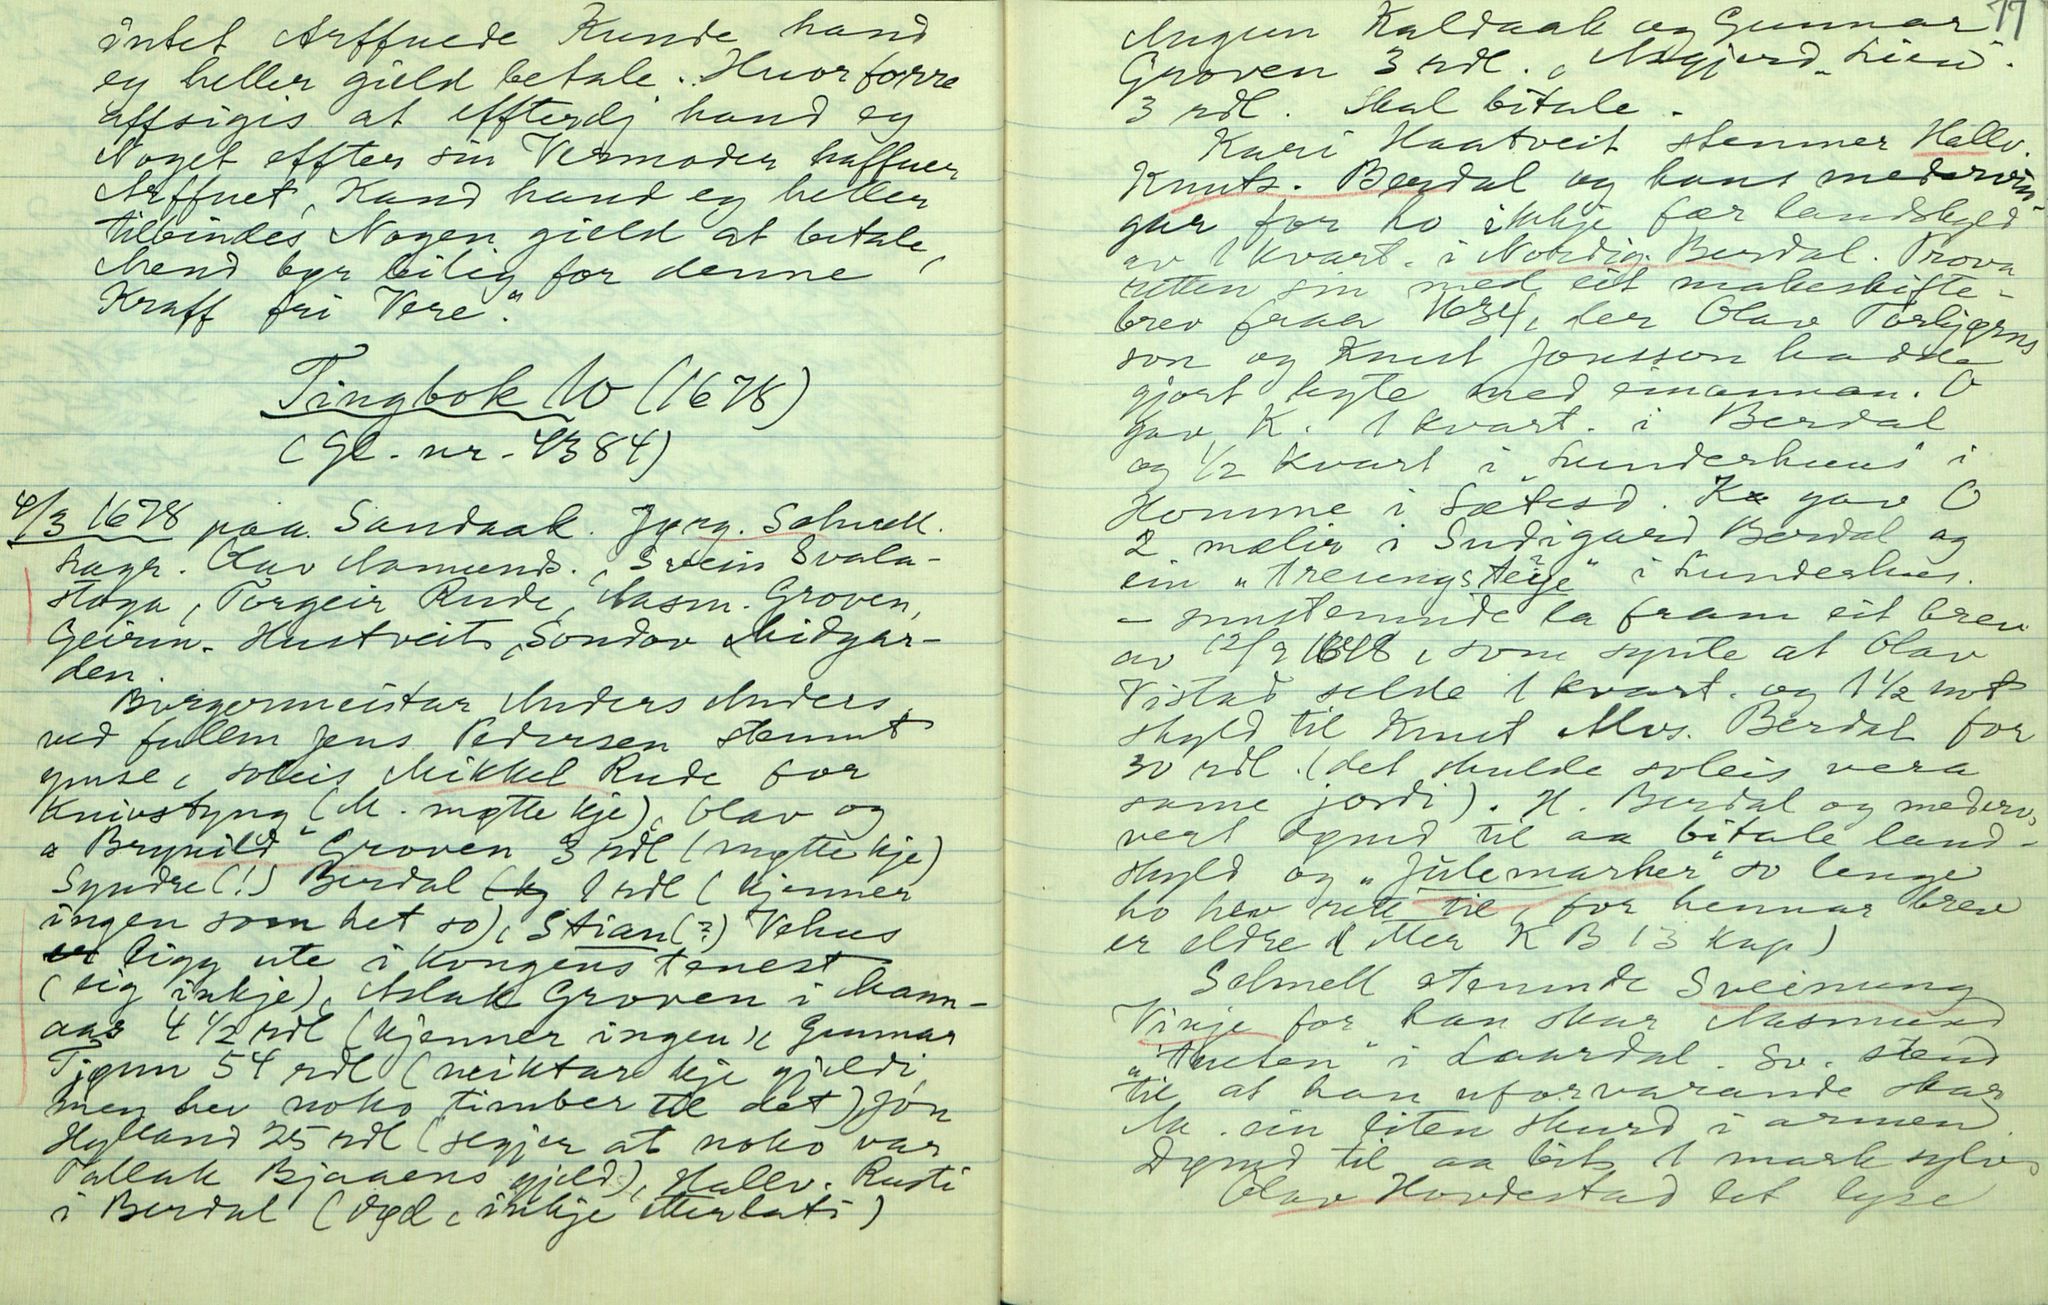 intet Arffuede Kunde hand
ey heller gield betale. Huorforre
affsigis at effterdj hand ey
Noget effter sin Vermoder haffuer
Arffuet, Kand hand ey heller
tilbindes Nogen gield at betale,
Mend bør billig for denne
Kraff fri Vere".
Tingbok 10 (1678)
(Gl. nr. 4384)
4/3 1678 paa Sandaak. Jørg. Schnell.
Lagr. Olav Aamunds., Svein Svala-
stoga, Torgeir Rude, Aasm. Groven,
Geirm. Hustveit, Sondov Midgar-
den.
Borgermeistar Anders Anders.
ved fullm Jens Pedersen stemnt
ymse, soleis Mikkel Rude for
Knivstyng (M. møtte kje), Olav og
"Brynild" Groven 3 rdl (møtte kje)
Syndre(!) Berdal 1 rdl (kjenner
ingen som het so), Stian(?) Vehus
ligg ute i kongens tenest
(eig inkje), Aslak Groven i Mann-
aas 4 1/2 rdl (kjenner ingen), Gunnar
Tjønn 54 rdl (neiktar kje gjeldi
men hev noko timber til det), Jón
Hylland 25 rdl (segjer at noko var
Tallak Bjaaens gjeld), Hallv. Rusti
i Berdal (død, inkje etterlati)
77
Augun Kaldaak og Gunnar
Groven 3 rdl., Asgjerd "Lien"
3 rdl. Skal bitale.
Kari Haatveit stemner Hallv.
Knuts. Berdal og hans medervin-
gar for ho ikkje fær landskyld
av 1 kvart. i Nordig. Berdal. Prova
retten sin med eit makeskifte-
brev fraa 1634, der Olav Torbjørns
son og Knut Jonsson hadde
gjort byte med einannan. O
gav K. 1 kvart. i Berdal
og 1/2 kvart i "Lunderhuus" i
Homme i Sætesd. K gav O
2 mælir i Sudigard Berdal og
ein "tresengsteige" i Lunderhus.
- mustemnde la fram eit brev
av 12/9 1648, som synte at Olav
Vistad selde 1 kvart. og 1 1/2 not
skyld til Knut Alvs. Berdal for
30 rdl. (det skulde soleis vera
same jordi). H. Berdal og mederv.
vert dømd til aa bitale land-
skyld og "Julemarker" so lenge
ho hev rett til, for hennar brev
er eldre (etter K B 13 kap)
Schnell stemnde Sveinung
Vinje for han skar Aasmund
i Laardal. Sv. stend
til at han uforvarande skar
Aa. ein liten skurd i armen.
Dømd til aa bit. 1 mark sylv.
Olav Hovdestad let lyse